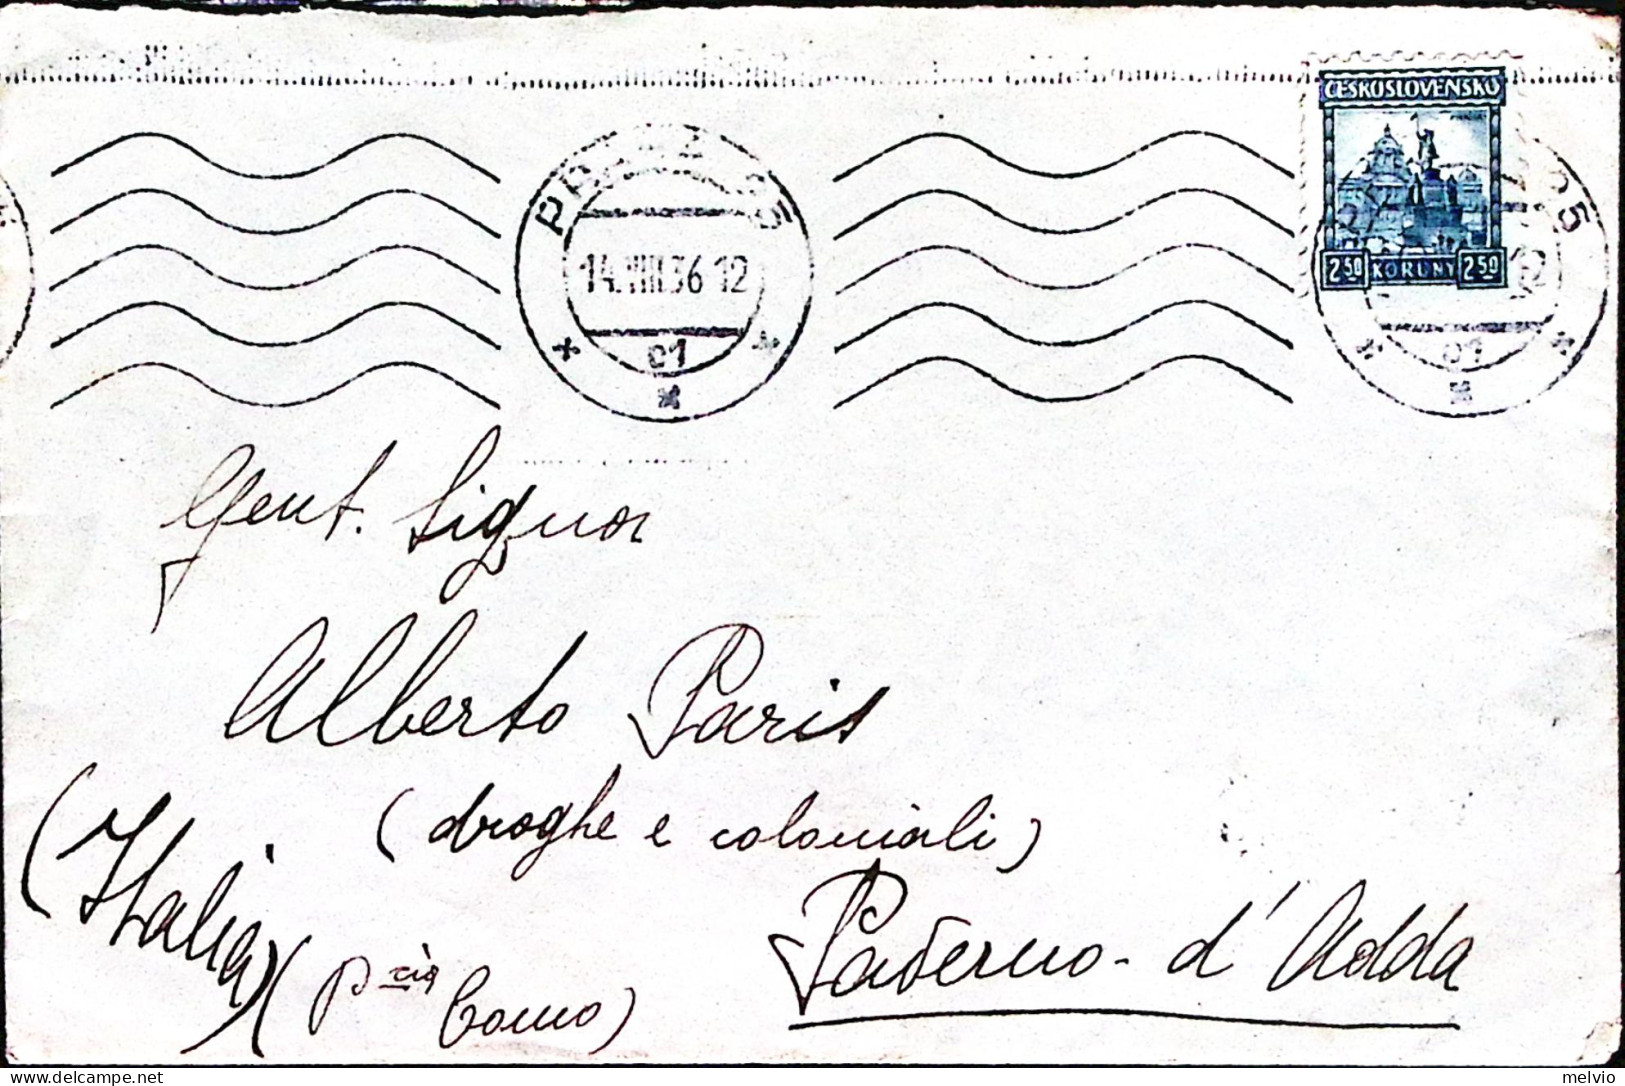 ČESKOSLOVENSKO
2 50 KORUNY 2 50
14.VIII.36 12
01
01
Gent. Signor
Alberto Paris
(droghe e coloniali)
Paderno-d'Adda
(Italia)
(P cia Como)
melvio